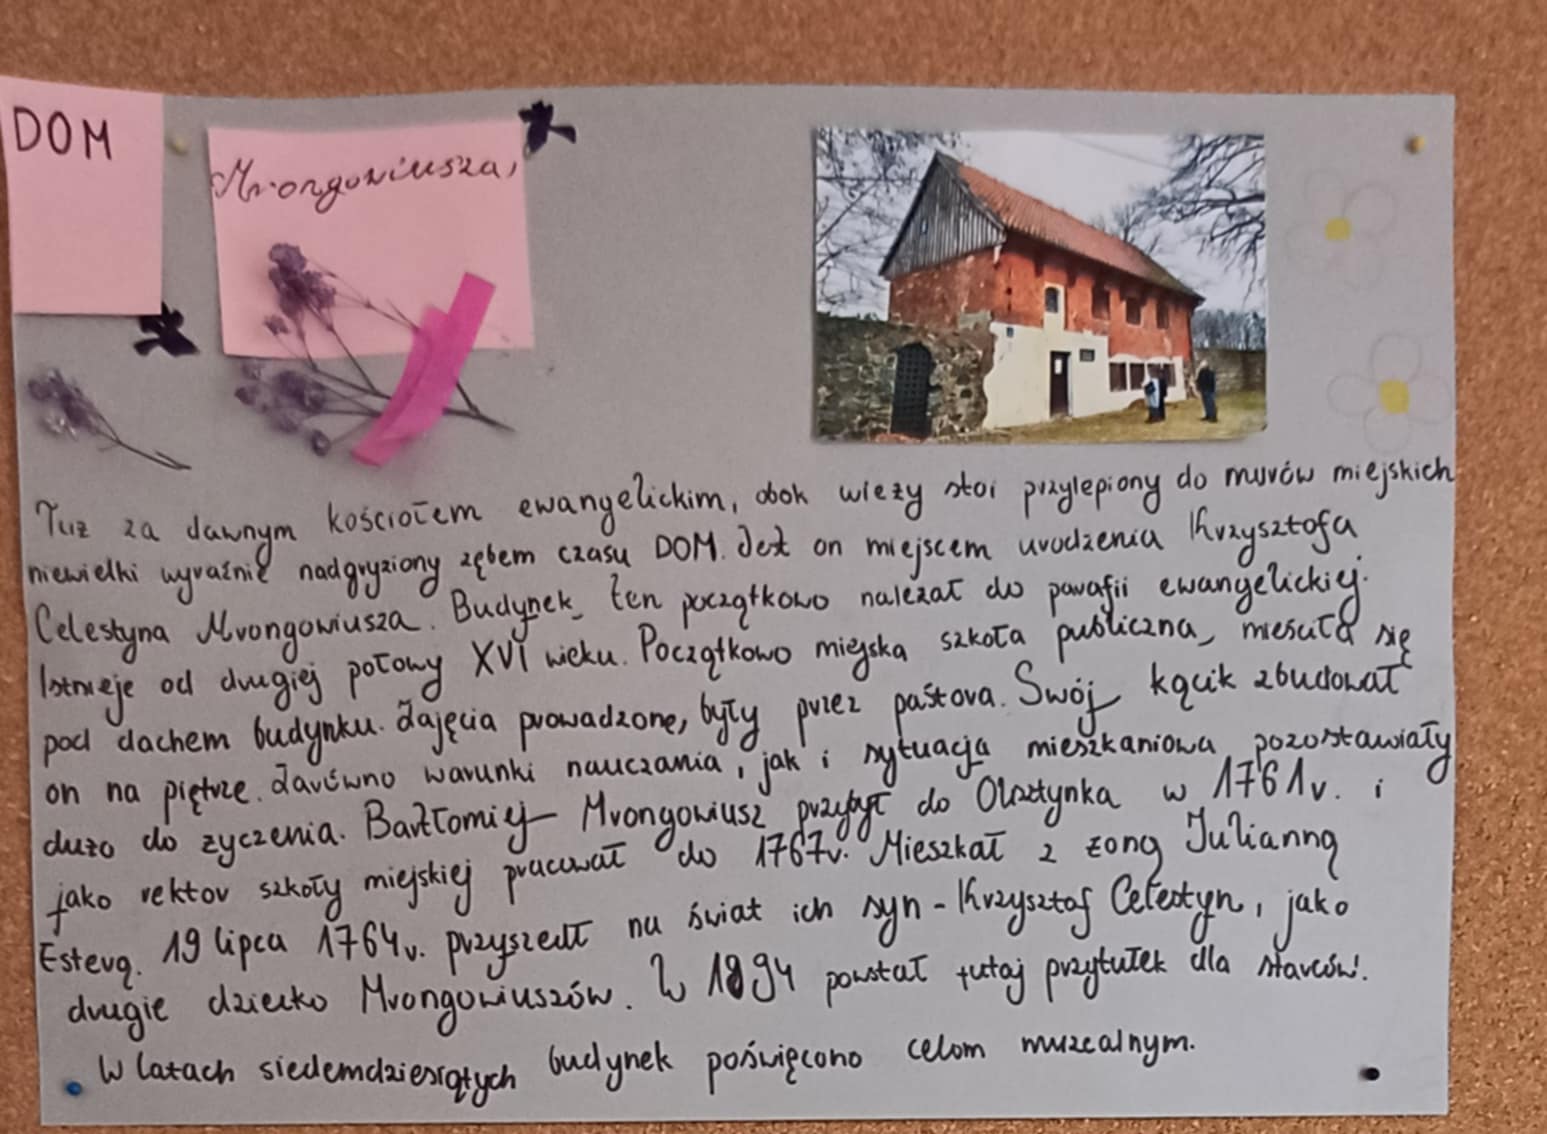 DOM
Mrongowiusza,
Tuż za dawnym kościołem ewangelickim, obok wieży stoi przylepiony do murów miejskich
niewielki wyraźnie nadgryziony zębem czasu DOM. Jest on miejscem urodzenia Krzysztofa
Celestyna Mrongowiusza. Budynek ten początkowo należał do parafii ewangelickiej.
Istnieje od drugiej połowy XVI wieku. Początkowo miejska szkoła publiczna, mieściła się
pod dachem budynku. Zajęcia prowadzone, były przez pastora. Swój kącik zbudował
on na piętrze. Zarówno warunki nauczania, jak i sytuacja mieszkaniowa pozostawiały
dużo do życzenia. Bartłomiej Mrongowiusz przybył do Olsztynka w 1761r. i
jako rektor szkoły miejskiej pracował do 1767r. Mieszkał z żoną Julianną
Esterą. 19 lipca 1764r. przyszedł na świat ich syn - Krzysztof Celestyn, jako
drugie dziecko Mrongowiuszów. W 1894 powstał tutaj przytułek dla starców.
W latach siedemdziesiątych budynek poświęcono celom muzealnym.